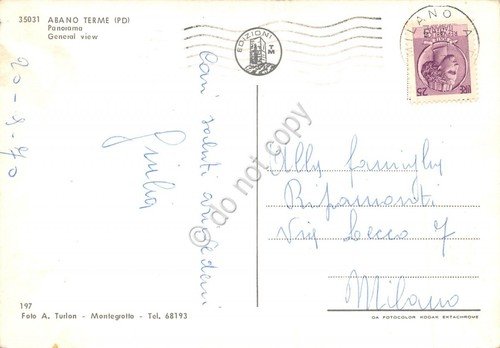 35031 ABANO TERME (PD)
Panorama
General view
EDIZIONI
TM
MILANO A
25
20-8-70
Cari saluti
Giulia
Alla famiglia
Ripamonti
Via Lecco 7
Milano
© do not copy
197
Foto A. Turlon - Montegrotto - Tel. 68193
DA FOTOCOLOR KODAK EKTACHROME